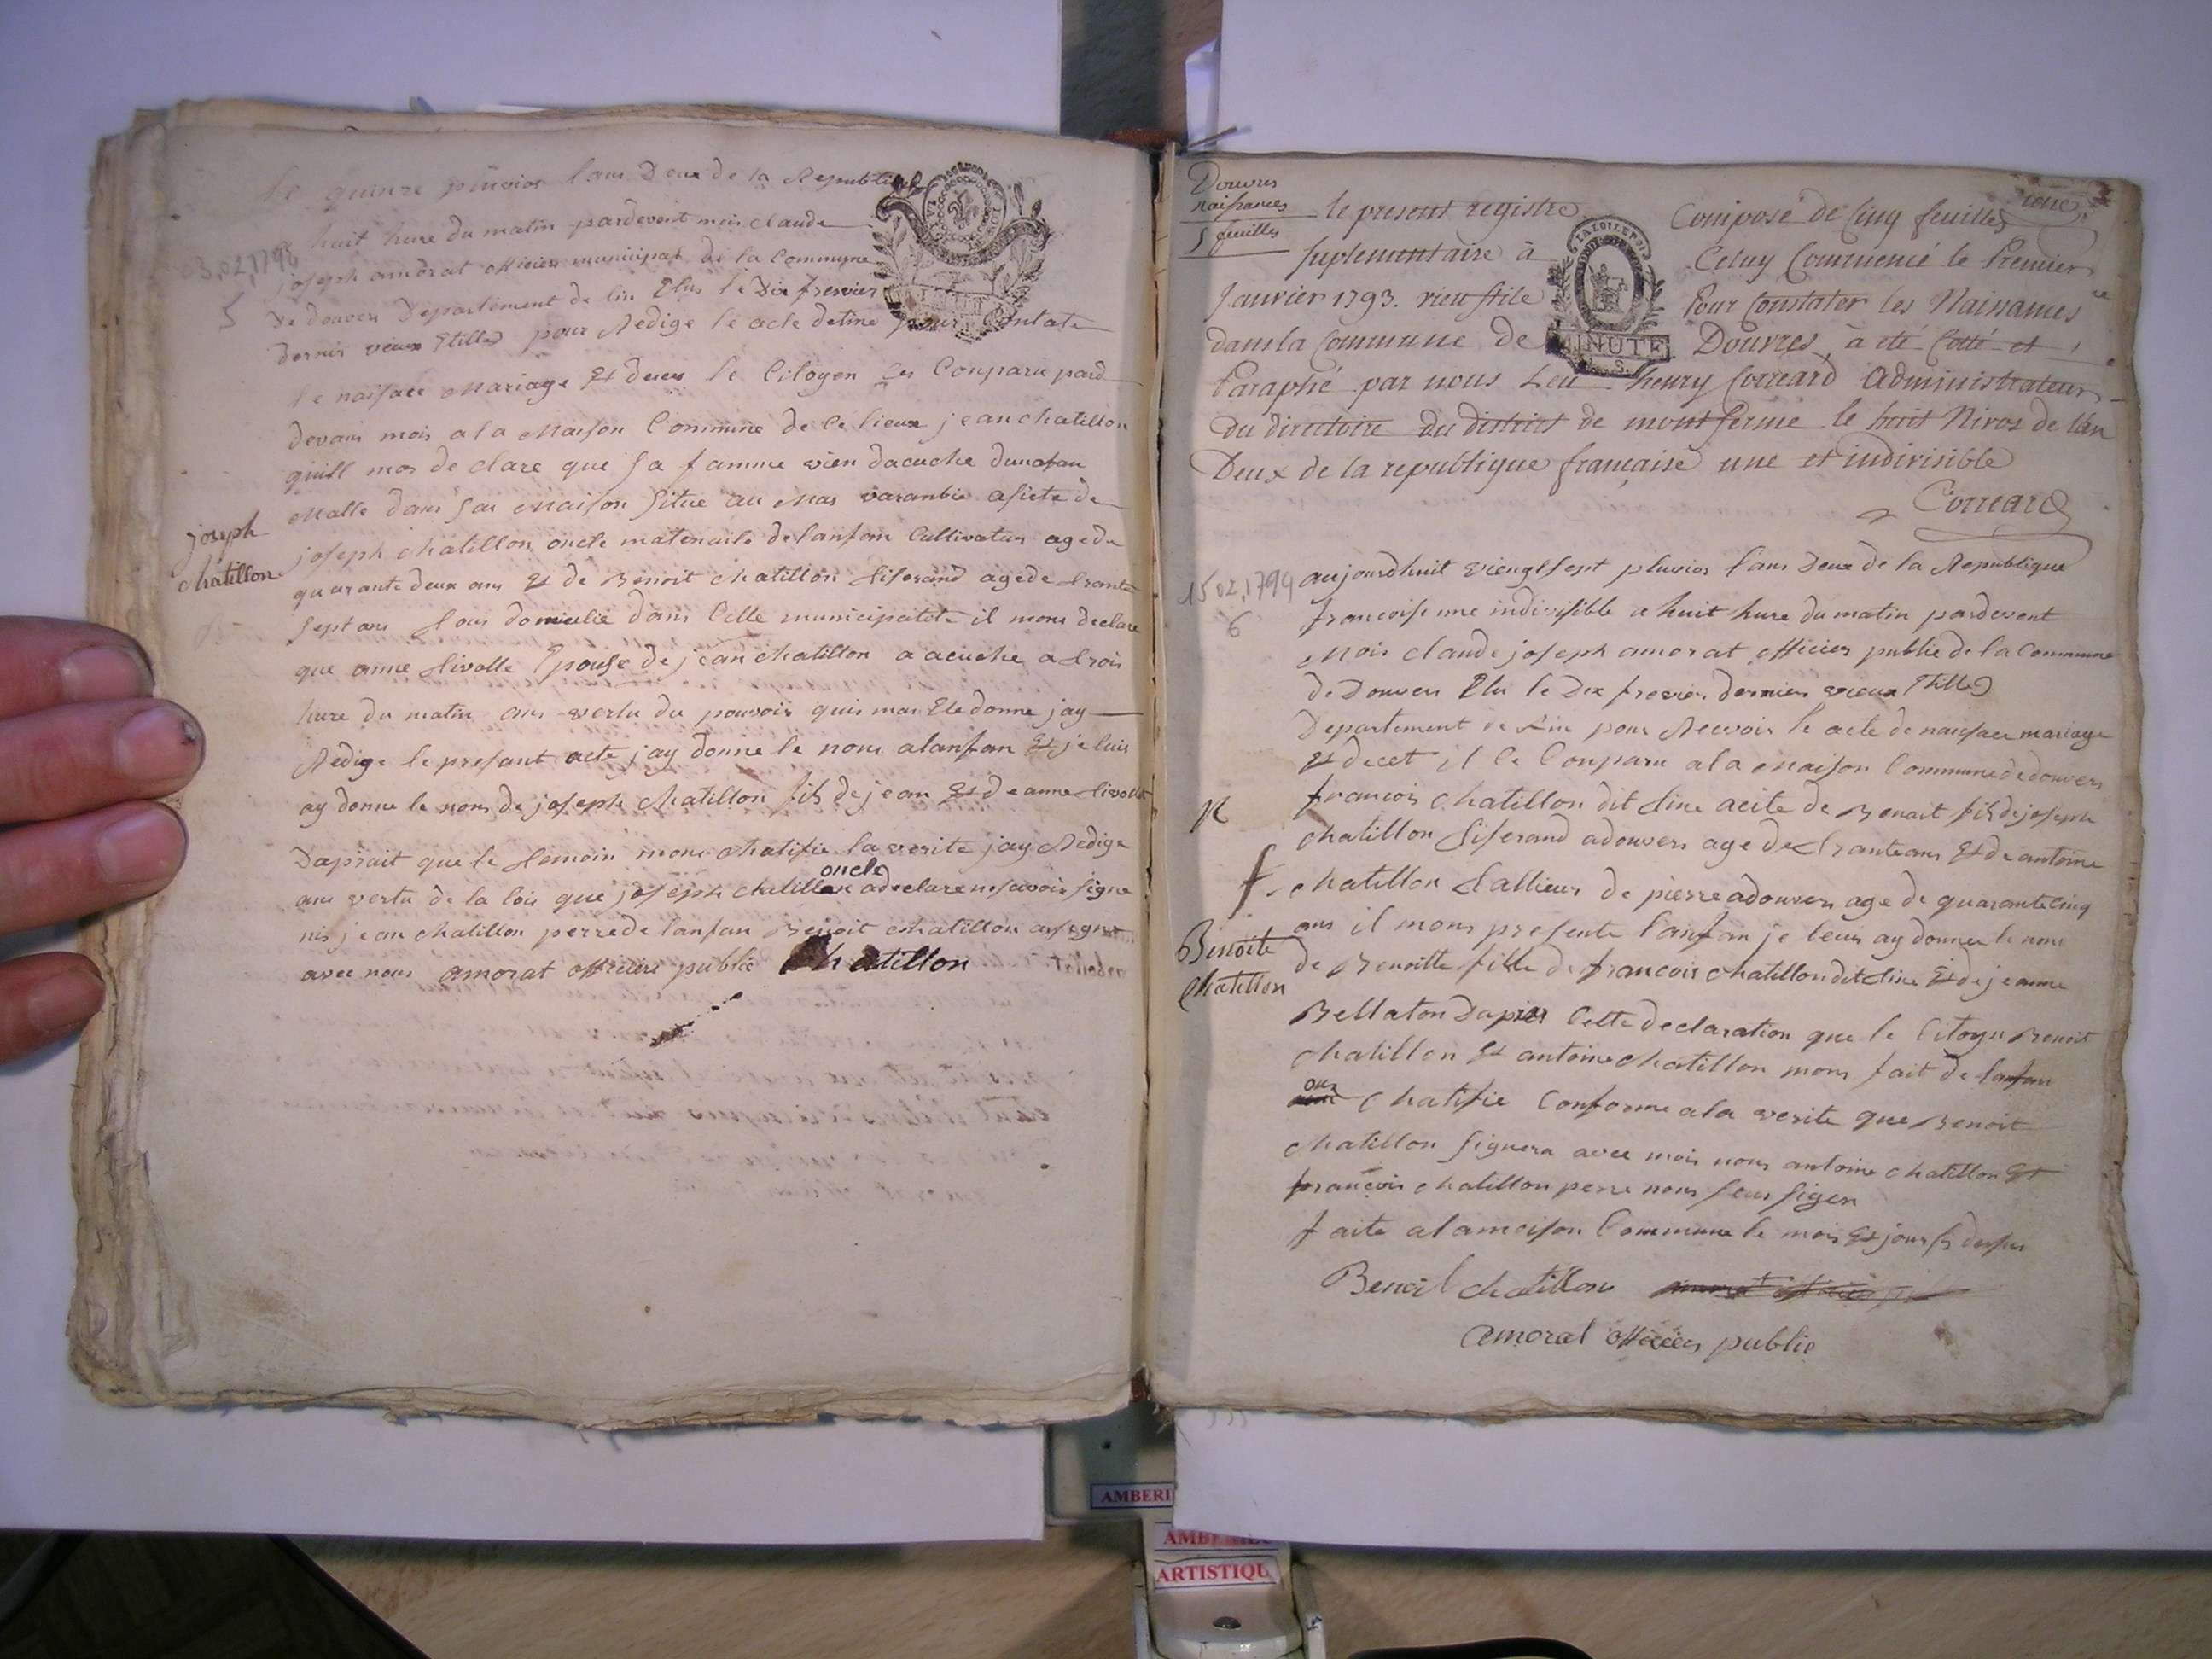 le quinze pluvios l'ans Deux de la Republique
a huit hure du matin pardevent mois claude
03,02,1794
joseph amorat officier municipal de la Commune
5
de douvers Departement de lin Elus le Dix frevier
dernier vieux Stilles pour Redige le acte detine pour Contate
le naissace Mariage Et deces le Citoyen Ces Conparu pard
devans mois a la Maison Commune de Ce lieux jean chatillon
quill mos de clare que sa famme vien dacuche dunafan
Malle dans san Maison Situe au Mas varanbie asiete de
joseph
chatillon
joseph chatillon oncle maternaile de lanfan Cultivateur age de
quarante deux ans Et de Benoit chatillon tiserand age de trante
sept ans tous domicilie dans Cette municipalite il mons declare
que anne tivolle Epouse de jean chatillon a acuche a trois
hure du matin ans vertu du pouvoir quis mas Ete donne jay
Redige le presant acte jay donne le nons alanfan Et je luis
ay donne le nons de joseph chatillon fils de jean Et de anne tivollet
Daprait que le temoin mons chatifie la verite jay Redige
oncle
ans vertu de la lois que joseph chatillon adeclare nesavoir signe
nis jean chatillon perre de lanfan Benoit chatillon asigne
avec nous amorat officiere public Chatillon
Douvres
naissances
5 feuilles
le present registre Composé de Cinq feuilles
suplementaire à Celuy Commencé le Premier
Janvier 1793. vieu stile Pour Constater les Naissances
dans la Commune de Douvres, à été Cotté et
Paraphé par nous Leu henry Correard Administrateur
du directoire du district de montferme le huit Nivos de l'an
Deux de la republique française une et indivisible
Correard
LA LOI LE ROI
MINUTE
S.
15 02,1794
6
aujourdhuit viengt sept pluvios l'ans Deux de la Republique
francoise une indivisible a huit hure du matin pardevent
Mois claude joseph amorat officier public de la Commune
de Douvers Elu le Dix frevier dernier vieux Stilles
Departement de Lin pour Recevoir le acte de naissace mariage
Et decet il Ce Conparu a la Maison Commune de douvers
N
francois chatillon dit tine acite de Benoit fils de joseph
chatillon tiserand adouvers age de trante ans Et de antoine
f.
chatillon tallieur de pierre adouvers age de quarante cinq
ans il mons presente lanfan je leuis ay donner le nons
Benoite
Chatillon
de Benoitte fille de francois chatillon dit tine Et de jeanne
Bellaton Dapres Cette declaration que le Citoyen Benoit
chatillon Et antoine chatillon mons fait de lanfan
ons chatifie Conforme a la verite que Benoit
chatillon signera avec mois nons antoine chatillon Et
françois chatillon perre nons seus sigen
faite alamaison Commune le mois Et jour ses desus
Benoit chatillon
amorat officier public
AMBERI
ARTISTIQU